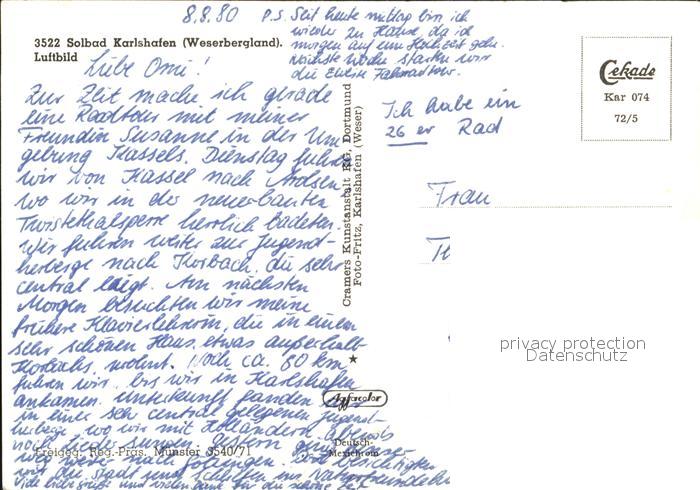 8.8.80
P.S. Seit heute mittag bin ich
wieder zu Hause, da ich
morgen auf eine Hochzeit gehe.
Nächste Woche starten wir
die zweite Fahrradtour.
3522 Solbad Karlshafen (Weserbergland).
Luftbild
Liebe Omi!
Zur Zeit mache ich gerade
eine Radtour mit meiner
Freundin Susanne in der Um
gebung Kassels. Dienstag fuhren
wir von Kassel nach Arolsen
wo wir in der neuerbauten
Twistethalsperre herrlich badeten.
Wir fuhren weiter zur Jugend-
herberge nach Korbach, die sehr
central liegt. Am nächsten
Morgen besuchten wir meine
frühere Klavierlehrerin, die in einem
sehr schönen Haus etwas außerhalb
Korbachs wohnt. Noch ca. 80 km
fuhren wir bis wir in Karlshafen
ankamen. Unterkunft fanden wir
in einer sehr central gelegenen Jugend-
herberge wo wir mit Holländern abends
noch Lieder sungen. Gestern
weiter nach Göttingen. besichtigten
wir die Stadt und schliefen im Naturfreundehaus
Viele liebe Grüße und vielen Dank für die schöne
Freigeg. Reg.-Präs. Münster 3540/71
Cramers Kunstanstalt KG, Dortmund
Foto-Fritz, Karlshafen (Weser)
Agfacolor
Deutsch-
Mexichrom
Ich habe ein
26 er Rad
Cekade
Kar 074
72/5
Frau
privacy protection
Datenschutz